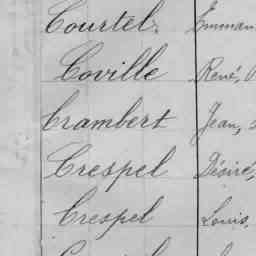 Courtel. Emman
Coville René,
Crambert Jean,
Crespel Désiré,
Crespel Louis.